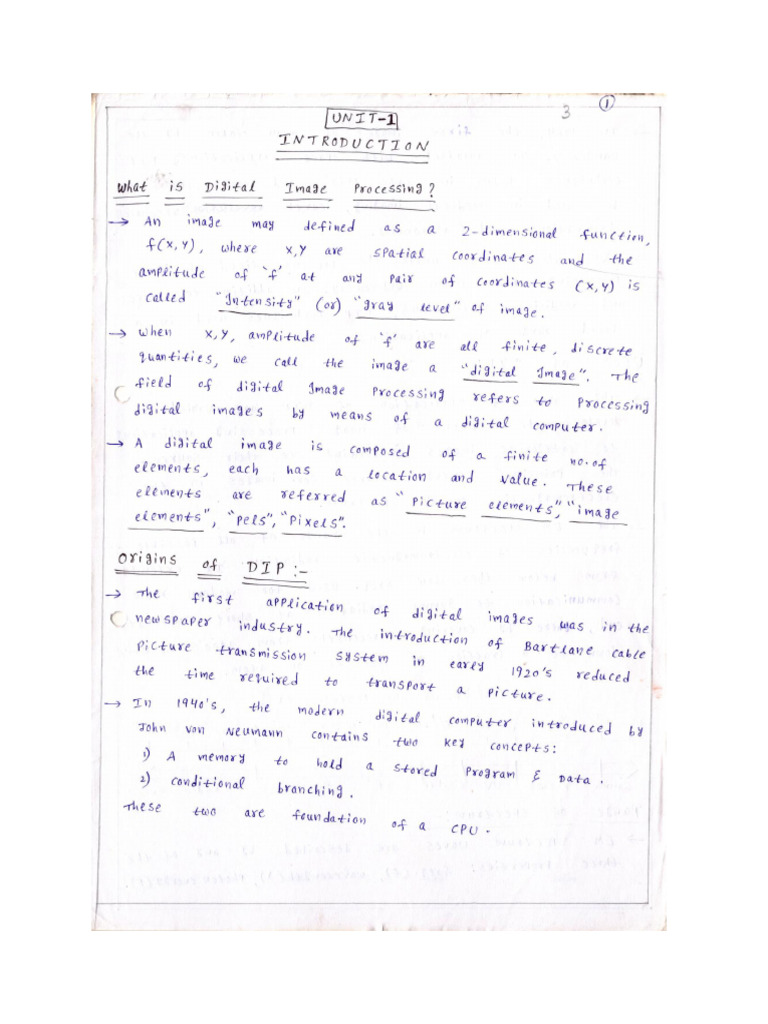 3 1
UNIT-1
INTRODUCTION
What is Digital Image Processing?
→ An image may defined as a 2-dimensional function,
f(x,y), where x,y are spatial coordinates and the
amplitude of 'f' at any pair of coordinates (x,y) is
called "Intensity" (or) "gray level" of image.
→ When x,y, amplitude of 'f' are all finite, discrete
quantities, we call the image a "digital Image". The
field of digital Image Processing refers to Processing
digital images by means of a digital computer.
→ A digital image is composed of a finite no. of
elements, each has a location and value. These
elements are referred as "Picture elements", "image
elements", "Pels", "Pixels".
Origins of DIP :-
→ The first application of digital images was in the
newspaper industry. The introduction of Bartlane cable
Picture transmission system in early 1920's reduced
the time required to transport a picture.
→ In 1940's, the modern digital computer introduced by
John Von Neumann contains two key concepts:
1) A memory to hold a stored Program & Data.
2) conditional branching.
These two are foundation of a CPU.